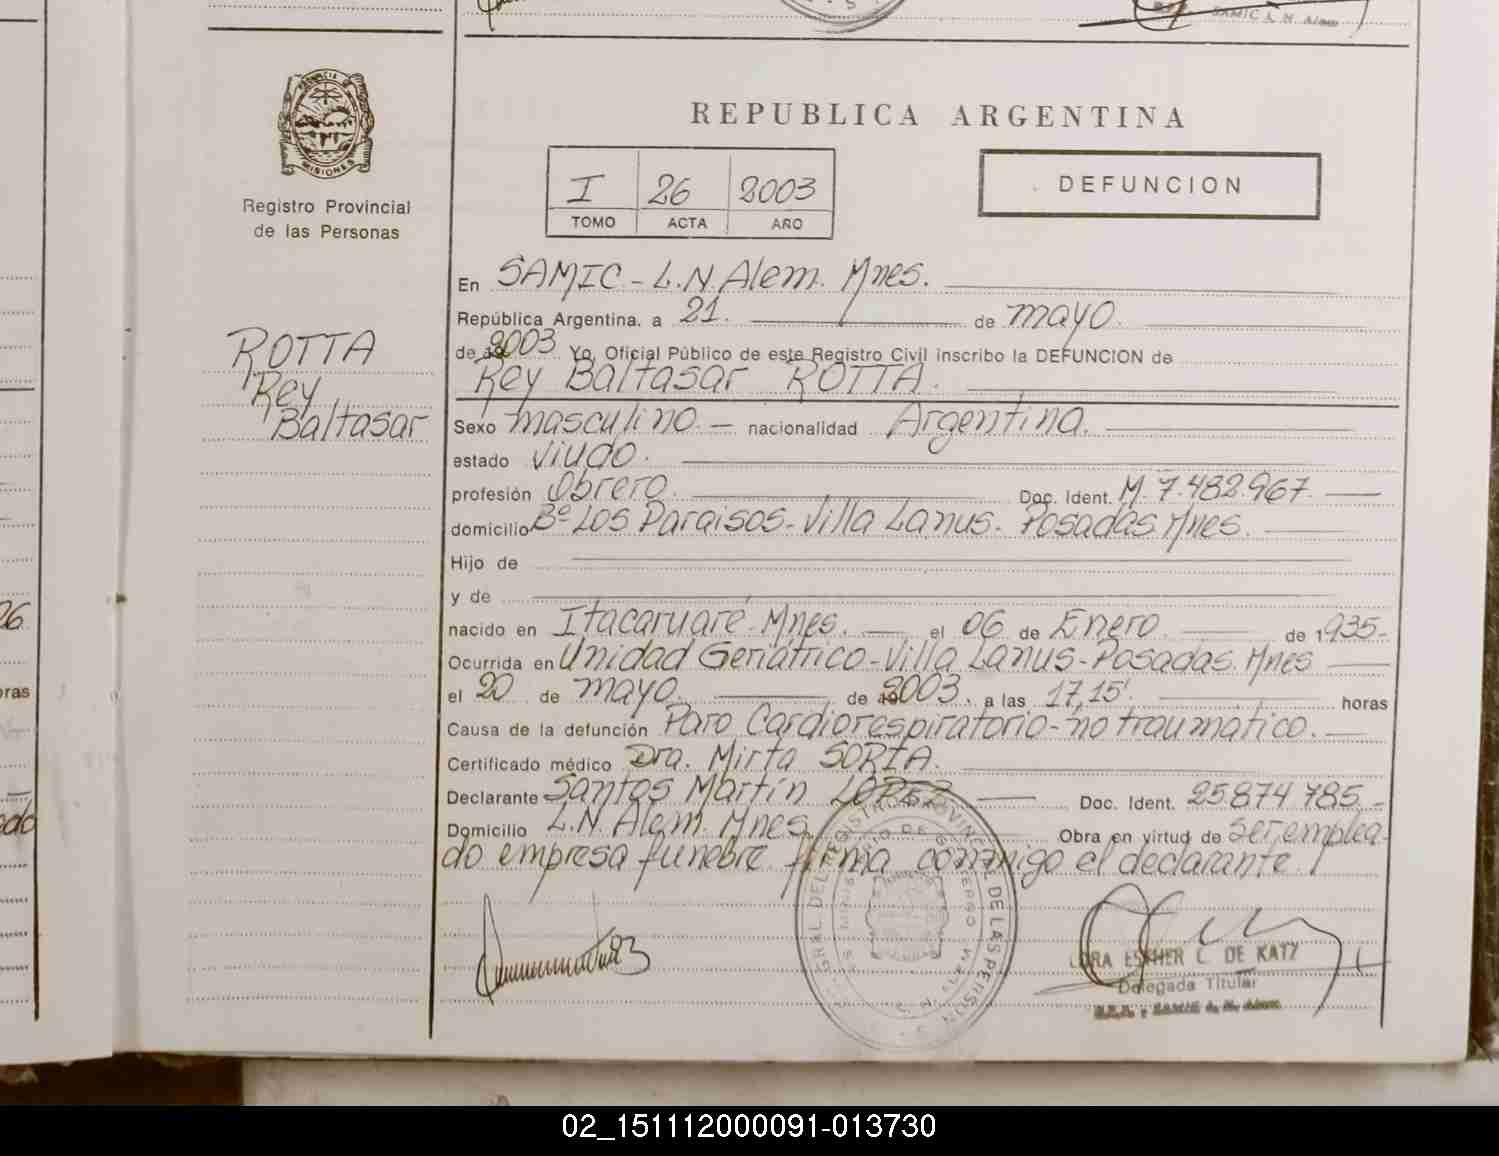 SAMIC L. N. Alem
PROVINCIA DE
MISIONES
Registro Provincial
de las Personas
ROTTA
Rey
Baltasar
REPUBLICA ARGENTINA
I 26 2003
TOMO ACTA AÑO
DEFUNCION
En SAMIC - L.N. Alem. Mnes.
República Argentina. a 21. de mayo.
de 2003 Yo, Oficial Público de este Registro Civil inscribo la DEFUNCION de
Rey Baltasar ROTTA.
Sexo masculino. - nacionalidad Argentina.
estado viudo.
profesión Obrero. Doc. Ident. M. 7.482.967.
domicilio Bº Los Paraisos - Villa Lanus - Posadas Mnes.
Hijo de
y de
nacido en Itacaruaré - Mnes. el 06 de Enero. de 1935-
Ocurrida en Unidad Geriátrico - Villa Lanus - Posadas. Mnes
el 20 de mayo. de 2003. a las 17,15'. horas
Causa de la defunción Paro Cardiorespiratorio - no traumático.
Certificado médico Dra. Mirta SORIA.
Declarante Santos Martín LOPEZ Doc. Ident. 25.874.785. -
Domicilio L.N. Alem. Mnes. Obra en virtud de ser emplea-
do empresa fúnebre. firma conmigo el declarante.
DE LAS PERSONAS
LORA ESTHER C. DE KATZ
Delegada Titular
26
oras
ado
02_151112000091-013730